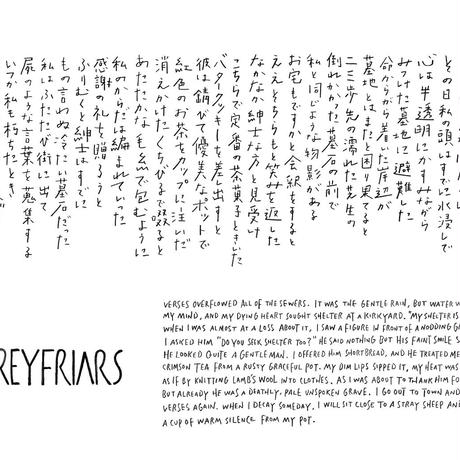 その日私の頭はすでに水浸し
心は半透明にかすみながら
みつけた墓地に避難した
命からがら着いた岸辺が
墓地とはまたと困り果てると
二三歩先の濡れた芝生の
倒れかかった墓石の前で
私と同じような物影がある
お宅もですかと会釈をすると
ええそちらもと笑みを返した
なかなか紳士な方と見受け
こちらで定番の茶菓子ときいた
バタークッキーを差し出すと
彼は錆びて優美なポットで
紅色のお茶をカップに注いだ
消えかけたくちびるで啜ると
あたたかな毛糸で包むように
私のからだは編まれていった
感謝の礼を贈ろうと
ふりむくと紳士はすでに
もの言わぬ冷たい墓石だった
私はふたたび街に出て
屍のような言葉を蒐集する
いつか私も朽ちたとき
REYFRIARS
VERSES OVERFLOWED ALL OF THE SEWERS. IT WAS THE GENTLE RAIN, BUT WATER W
MY MIND, AND MY DYING HEART SOUGHT SHELTER AT A KIRKYARD. "MY SHELTER IS
WHEN I WAS ALMOST AT A LOSS ABOUT IT, I SAW A FIGURE IN FRONT OF A NODDING G
I ASKED HIM "DO YOU SEEK SHELTER TOO?" HE SAID NOTHING BUT HIS FAINT SMILE S
HE LOOKED QUITE A GENTLEMAN. I OFFERED HIM SHORTBREAD, AND HE TREATED ME
CRIMSON TEA FROM A RUSTY GRACEFUL POT. MY DIM LIPS SIPPED IT, MY HEAT WAS
AS IF BY KNITTING LAMB'S WOOL INTO CLOTHES. AS I WAS ABOUT TO THANK HIM FO
BUT ALREADY HE WAS A DEATHLY. PALE UNSPOKEN GRAVE. I GO OUT TO TOWN AND
VERSES AGAIN. WHEN I DECAY SOMEDAY, I WILL SIT CLOSE TO A STRAY SHEEP AND
A CUP OF WARM SILENCE FROM MY POT.